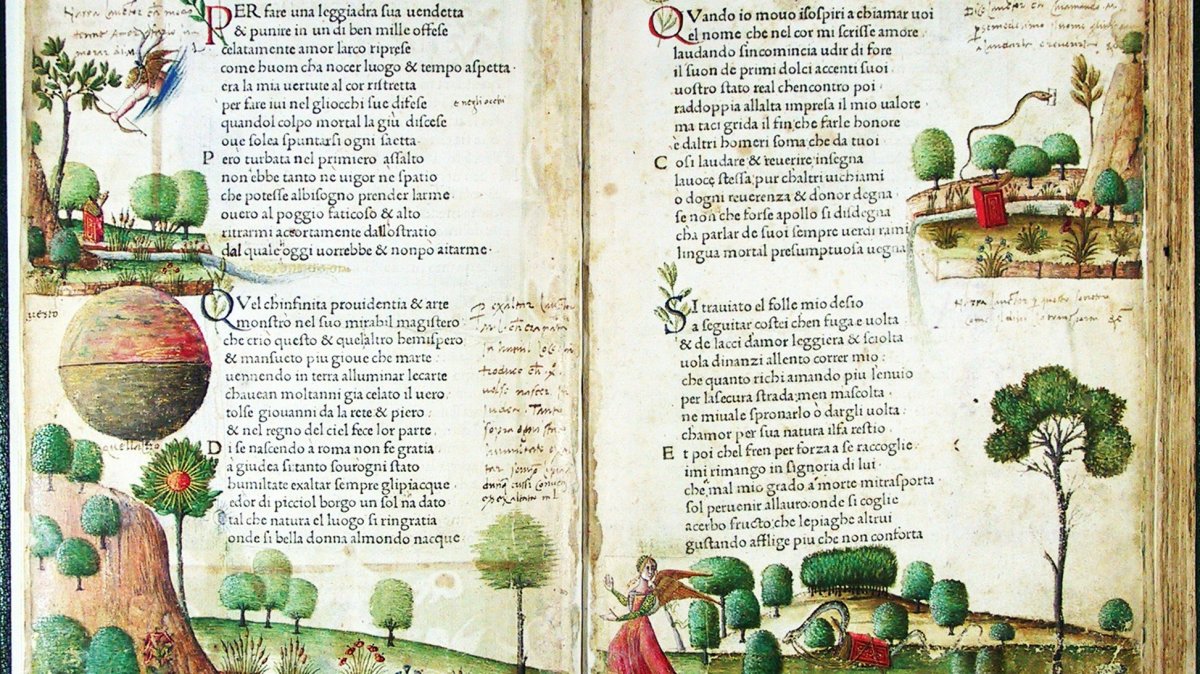 PER fare una leggiadra sua uendetta
& punire in un di ben mille offese
celatamente amor larco riprese
come huom cha nocer luogo & tempo aspetta·
era la mia uertute al cor ristretta
per fare iui nel gliocchi sue difese
e negli occhi
quandol colpo mortal la giu discese
oue solea spuntarsi ogni saetta·
Pero turbata nel primiero assalto
non ebbe tanto ne uigor ne spatio
che potesse albisogno prender larme
ouero al poggio faticoso & alto
ritrarmi accortamente dallostratio
dal quale oggi uorrebbe & nonpò aitarme·
QVel chinfinita prouidentia & arte
monstrò nel suo mirabil magistero
che criò questo & quelaltro hemispero
& mansueto piu gioue che marte·
uennendo in terra alluminar lecarte
chauean moltanni gia celato il uero·
tolse giouanni da la rete & piero·
& nel regno del ciel fece lor parte·
Di se nascendo a roma non fe gratia
a giudea si: tanto sourogni stato
humiltate exaltar sempre glipiacque
edor di picciol borgo un sol na dato
tal che natura el luogo si ringratia
onde si bella donna almondo nacque·
QVando io mouo isospiri a chiamar uoi
el nome che nel cor mi scrisse amore
laudando sincomincia udir di fore
il suon de primi dolci accenti suoi
uostro stato real chencontro poi
raddoppia allalta impresa il mio ualore·
ma taci grida il fin: che farle honore
è daltri homeri soma che da tuoi
Cosi laudare & reuerire insegna
lauoce stessa: pur chaltri uichiami
o dogni reuerenza & donor degna
se non che forse apollo si disdegna
cha parlar de suoi sempre uerdi rami
lingua mortal presumptuosa uegna
SI trauiato el folle mio desio
a seguitar costei chen fuga e uolta
& de lacci damor leggiera & sciolta
uola dinanzi allento correr mio:
che quanto richiamando piu lenuio
per lasecura strada: men mascolta·
ne miuale spronarlo ò dargli uolta
chamor per sua natura ilfa restio·
Et poi chel fren per forza a se raccoglie:
imi rimango in signoria di lui
che mal mio grado a morte mitrasporta
sol peruenir allauro: onde si coglie
acerbo fructo: che lepiaghe altrui
gustando afflige piu che non conforta